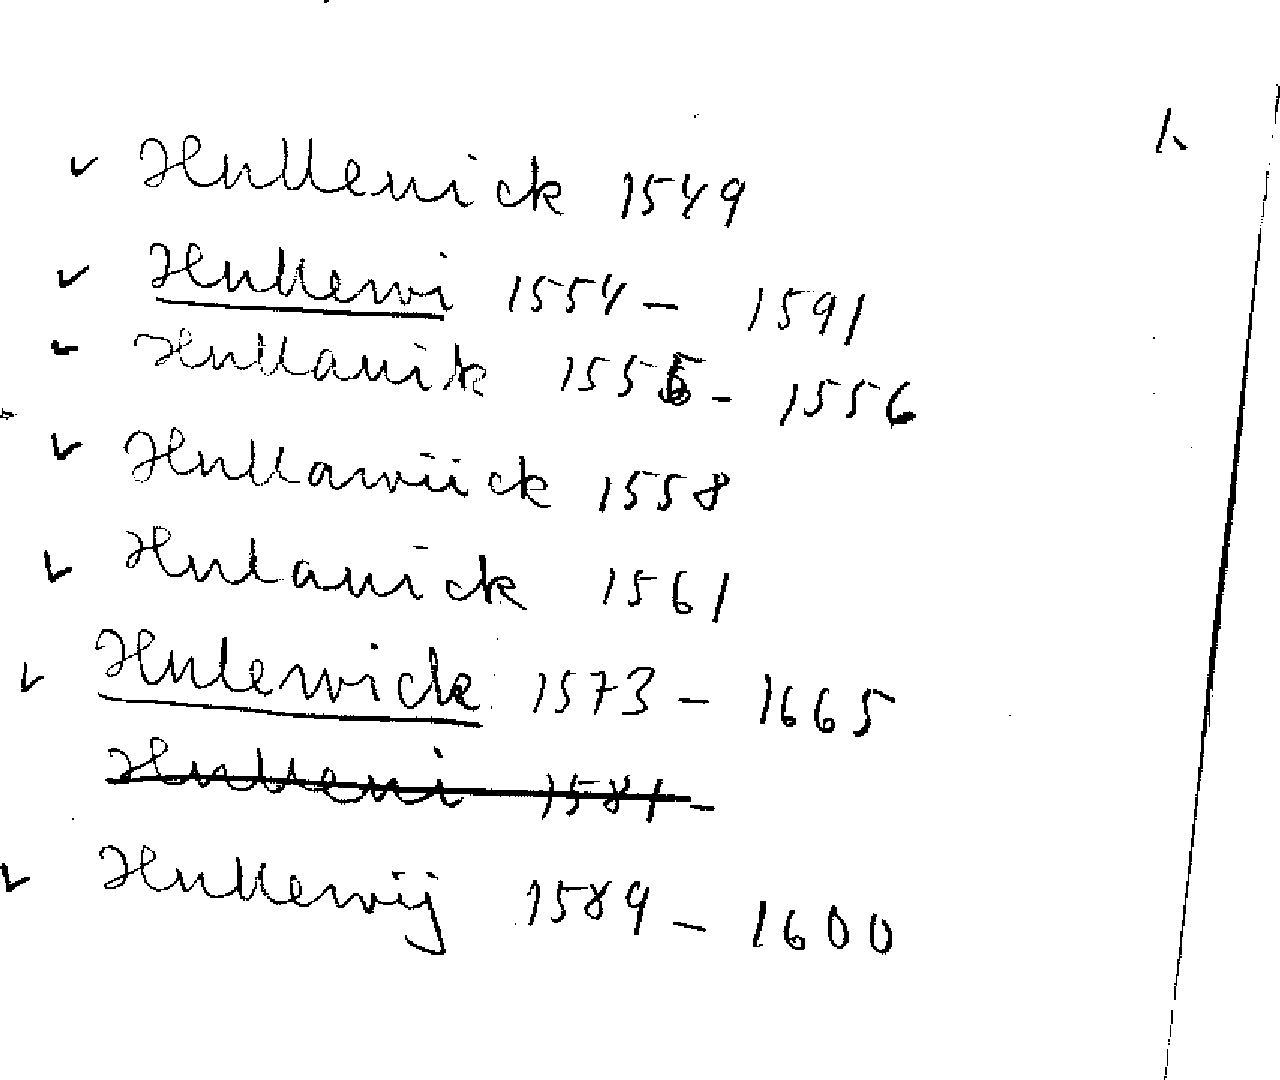 1.
✓ Hullewick 1549
✓ Hullewi 1554 - 1591
✓ Hullawik 1555 - 1556
✓ Hullawiick 1558
✓ Hulawick 1561
✓ Hulewick 1573 - 1665
Hullewi 1581 -
✓ Hullewij 1589 - 1600